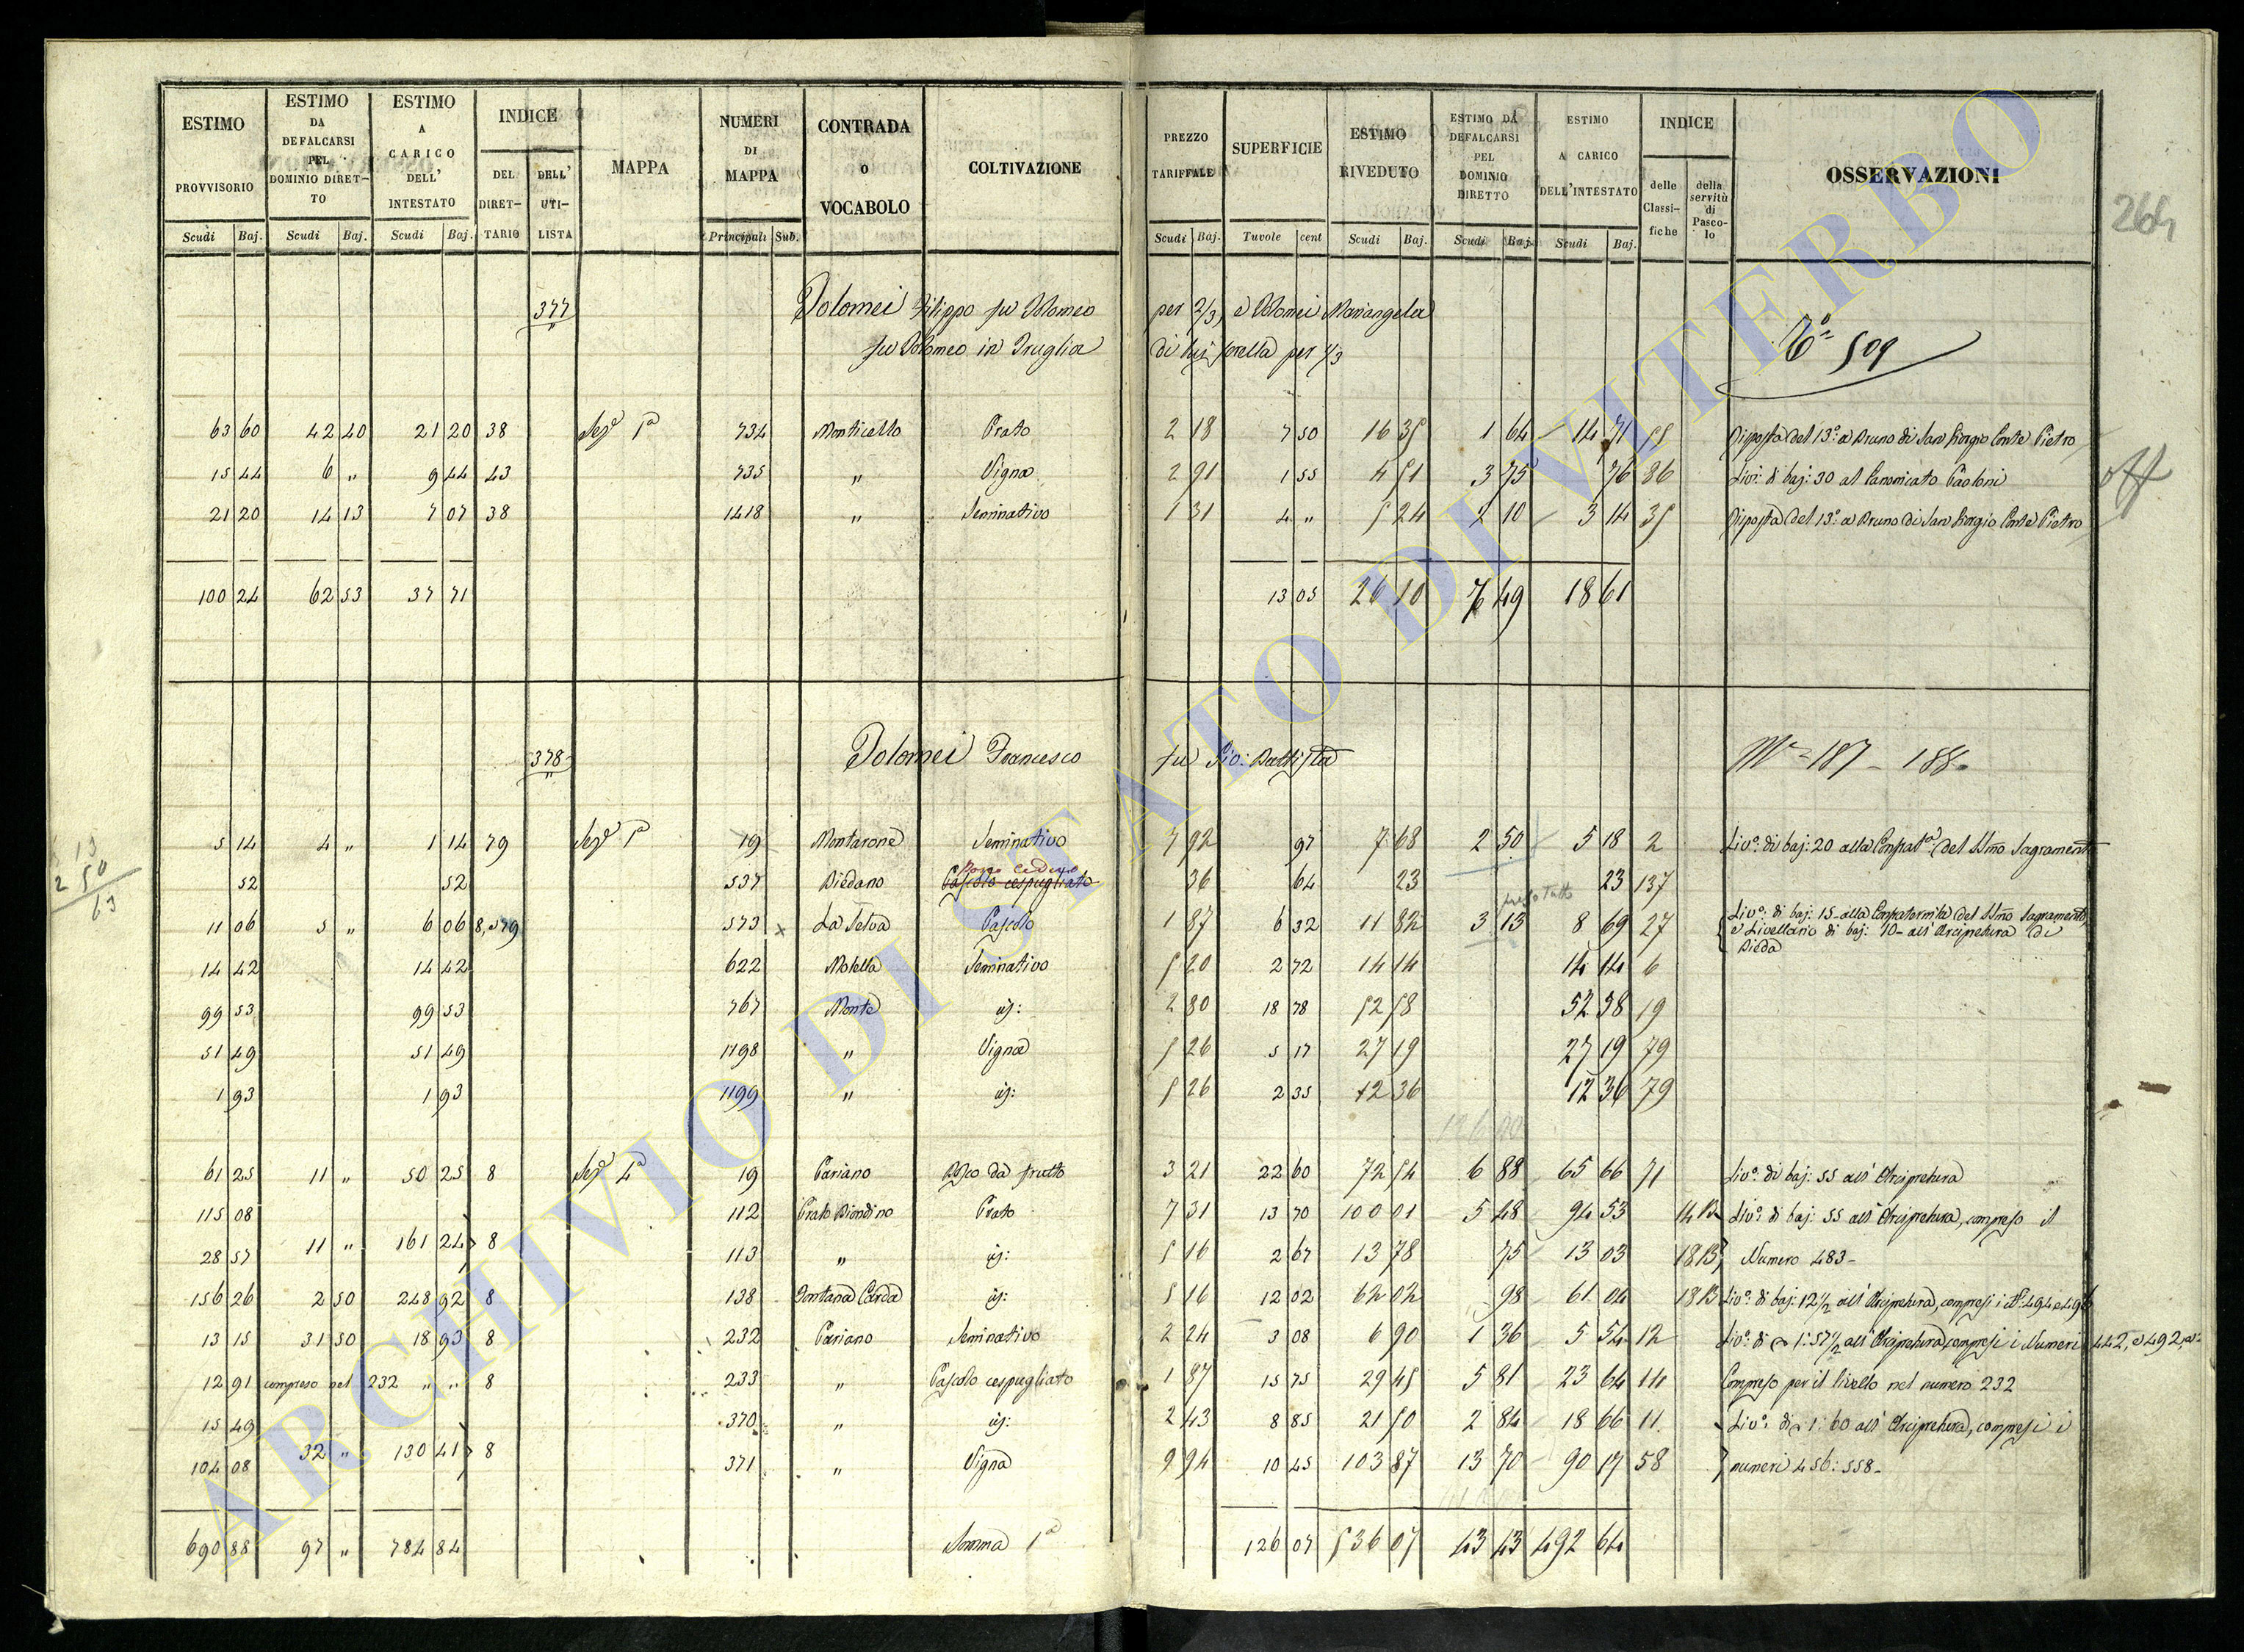 ESTIMO PROVVISORIO Scudi Baj. ESTIMO DA DEFALCARSI PEL DOMINIO DIRET-TO Scudi Baj. ESTIMO A CARICO DELL' INTESTATO Scudi Baj. INDICE DEL DIRET-TARIO DELL' UTI-LISTA MAPPA NUMERI DI MAPPA Principali Sub. CONTRADA o VOCABOLO COLTIVAZIONE PREZZO TARIFFALE Scudi Baj. SUPERFICIE Tavole cent ESTIMO RIVEDUTO Scudi Baj. ESTIMO DA DEFALCARSI PEL DOMINIO DIRETTO Scudi Baj. ESTIMO A CARICO DELL'INTESTATO Scudi Baj. INDICE delle Classi-fiche della servitù di Pasco-lo OSSERVAZIONI
264
377 Tolomei Filippo fu Tolomeo per 2/3, e Tolomei Mariangela
fu Tolomeo in Truglia di lui sorella per 1/3 509
63 60 42 40 21 20 38 Sezᵉ 1ª 734 Monticello Prato 2 18 7 50 16 35 1 64 14 71 55 Risposta del 13º a Bruno di San Giorgio Conte Pietro
15 44 6 " 9 44 43 735 " Vigna 2 91 1 55 4 51 3 75 76 86 Livº di baj: 30 al Canonicato Paoloni
21 20 14 13 7 07 38 1418 " Seminativo 1 31 4 " 5 24 2 10 3 14 35 Risposta del 13º a Bruno di San Giorgio Conte Pietro
100 24 62 53 37 71 13 05 26 10 7 49 18 61
378 Tolomei Francesco fu Gio: Battista 187 - 188
5 14 4 " 1 14 79 Sezᵉ 1ª 19 Montarone Seminativo 7 92 97 7 68 2 50 5 18 2 Livº di baj: 20 alla Confratª del SSmo Sagramento
Bosco ceduo
52 52 537 Biedano Pascolo cespugliato 36 64 23 23 137
11 06 5 " 6 06 8, 579 573 x La Selva Pascolo 1 87 6 32 11 82 3 13 8 69 27 Livº di baj: 15 alla Confraternita del SSmo Sagramento,
e Livellario di baj: 10 all' Arcipretura di
Bieda
14 42 14 42 622 Molella Seminativo 5 20 2 72 14 14 14 14 6
99 53 99 53 767 Monte id: 2 80 18 78 52 58 52 58 19
51 49 51 49 1198 " Vigna 5 26 5 17 27 19 27 19 79
1 93 1 93 1199 " id: 5 26 2 35 12 36 12 36 79
61 25 11 " 50 25 8 Sezᵉ 4ª 19 Pariano Bosco da frutto 3 21 22 60 72 54 6 88 65 66 71 Livº di baj: 55 all' Arcipretura
115 08 112 Prato Biondino Prato 7 31 13 70 100 01 5 48 94 53 14 B Livº di baj: 55 all' Arcipretura, compreso il
28 57 11 " 161 24 8 113 " id: 5 16 2 67 13 78 75 13 03 18 B Numero 483
156 26 2 50 248 92 8 138 Fontana Carda id: 5 16 12 02 62 02 98 61 04 18 B Livº di baj: 12 1/2 all' Arcipretura, compresi i Nº 494 e 496
13 15 31 50 18 93 8 232 Pariano Seminativo 2 24 3 08 6 90 1 36 5 54 12 Livº di 1:57 1/2 all' Arcipretura, compresi i Numeri 442, e 492
12 91 compreso nel 232 " " 8 233 " Pascolo cespugliato 1 87 15 75 29 45 5 81 23 64 14 Compreso per il livello nel numero 232
15 49 370 " id: 2 43 8 85 21 50 2 84 18 66 11 Livº di 1:60 all' Arcipretura, compresi i
104 08 32 " 130 41 8 371 " Vigna 9 94 10 45 103 87 13 70 90 17 58 numeri 456: 558
690 88 97 " 784 84 Somma 1ª 126 07 536 07 43 43 492 64
ARCHIVIO DI STATO DI VITERBO